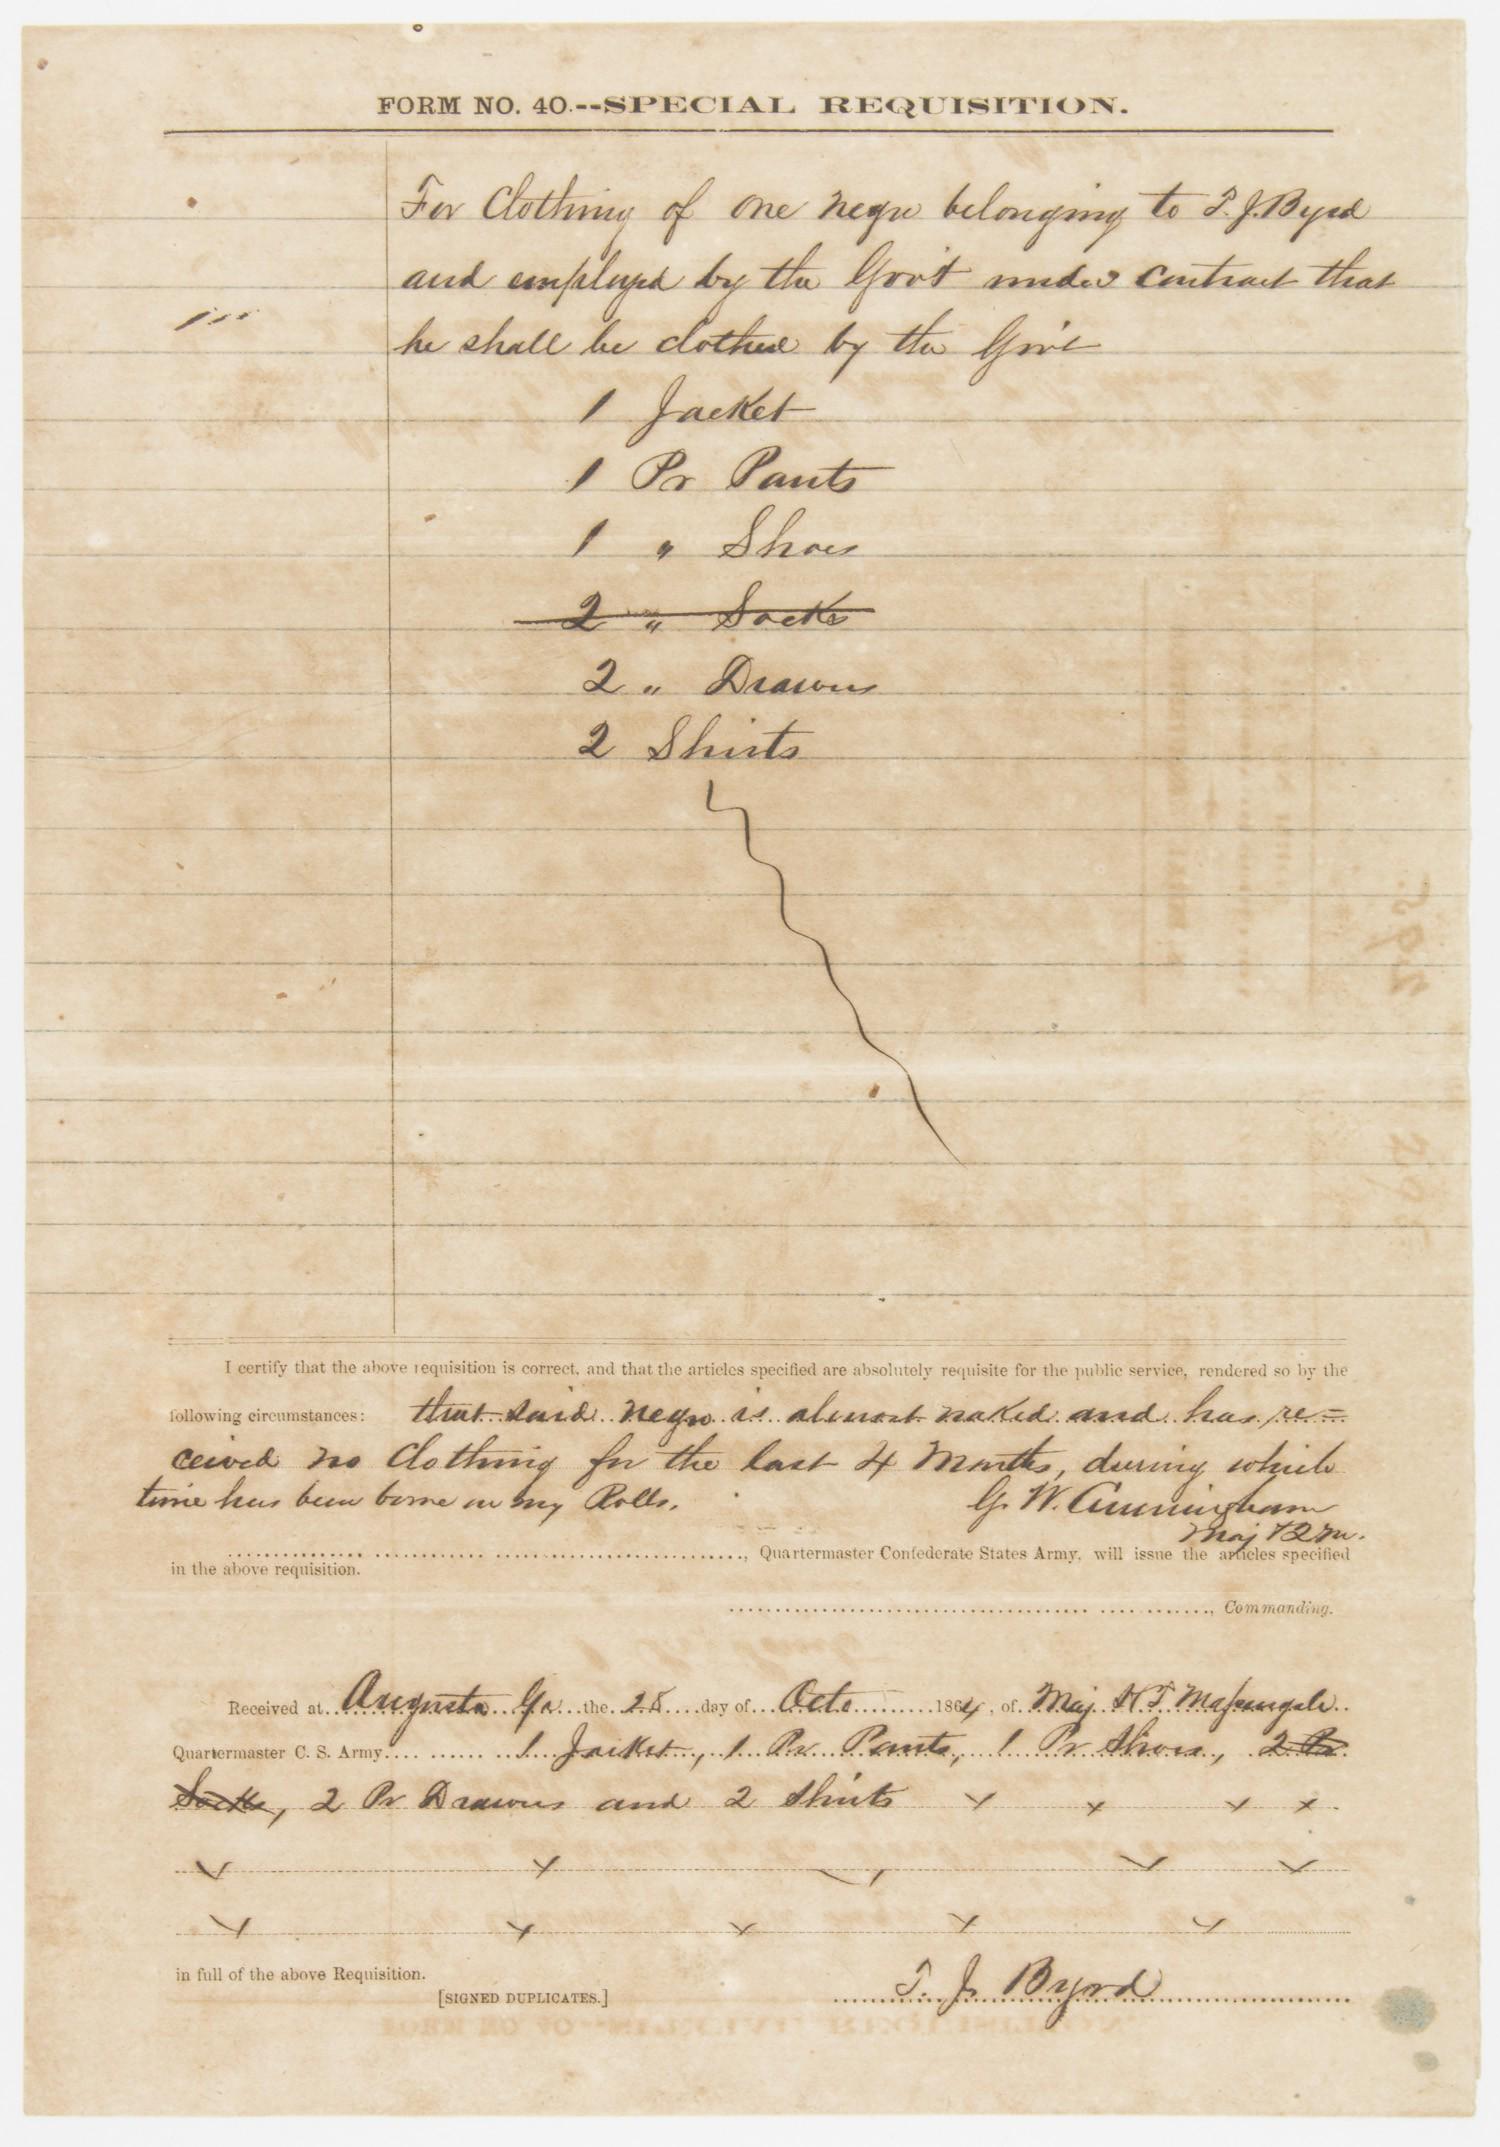 FORM NO. 40.--SPECIAL REQUISITION.
For Clothing of one negro belonging to T. J. Byrd
and employed by the Gov't under contract that
he shall be clothed by the Gov't
1 Jacket
1 Pr Pants
1 " Shoes
2 " Socks
2 " Drawers
2 Shirts
I certify that the above requisition is correct, and that the articles specified are absolutely requisite for the public service, rendered so by the
following circumstances: that said negro is almost naked and has re=
ceived no Clothing for the last 4 Months, during which
time has been borne on my Rolls.
G. W. Cunningham
Maj & Q M.
, Quartermaster Confederate States Army, will issue the articles specified
in the above requisition.
, Commanding.
Received at Augusta Ga the 28 day of Octo 1864, of Maj
Quartermaster C. S. Army 1 Jacket, 1 Pr Pants, 1 Pr Shoes, 2 Pr
Socks, 2 Pr Drawers and 2 Shirts x x x x
in full of the above Requisition.
[SIGNED DUPLICATES.]
T. J. Byrd